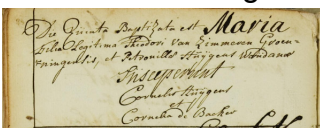 Die Quinta Baptizata est Maria
Filia Legitima Theodori Van Zimmeren Groen-
=ningensis, et Petronilla Huÿgens
Susceperunt
Cornelis Huÿgens
et
Cornelia de Backer